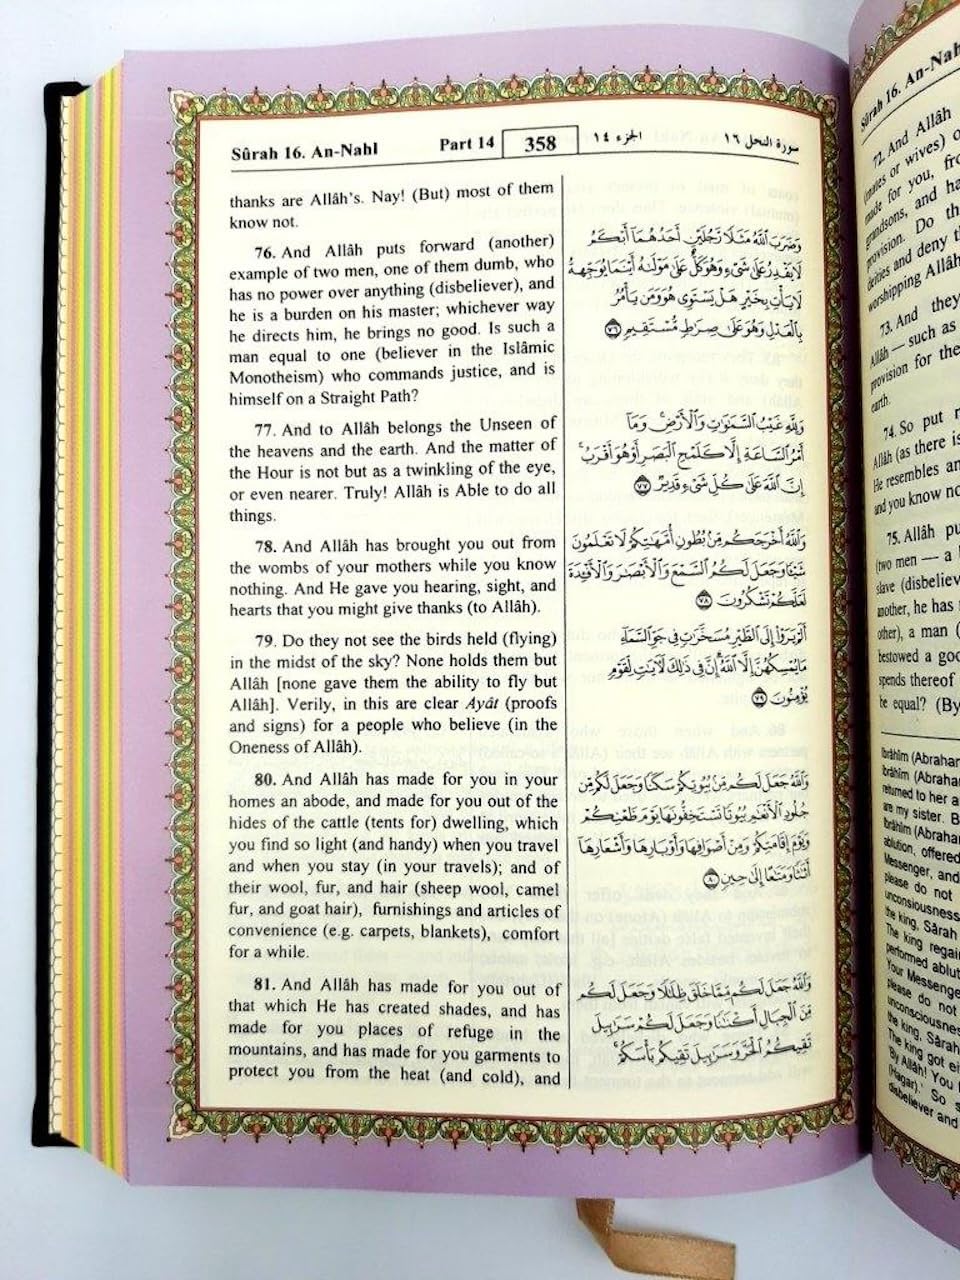 Sûrah 16. An-Nahl
Part 14
358
الجزء ١٤
سورة النحل ١٦
thanks are Allâh's. Nay! (But) most of them
know not.
76. And Allâh puts forward (another)
example of two men, one of them dumb, who
has no power over anything (disbeliever), and
he is a burden on his master; whichever way
he directs him, he brings no good. Is such a
man equal to one (believer in the Islâmic
Monotheism) who commands justice, and is
himself on a Straight Path?
77. And to Allâh belongs the Unseen of
the heavens and the earth. And the matter of
the Hour is not but as a twinkling of the eye,
or even nearer. Truly! Allâh is Able to do all
things.
78. And Allâh has brought you out from
the wombs of your mothers while you know
nothing. And He gave you hearing, sight, and
hearts that you might give thanks (to Allâh).
79. Do they not see the birds held (flying)
in the midst of the sky? None holds them but
Allâh [none gave them the ability to fly but
Allâh]. Verily, in this are clear Ayât (proofs
and signs) for a people who believe (in the
Oneness of Allâh).
80. And Allâh has made for you in your
homes an abode, and made for you out of the
hides of the cattle (tents for) dwelling, which
you find so light (and handy) when you travel
and when you stay (in your travels); and of
their wool, fur, and hair (sheep wool, camel
fur, and goat hair), furnishings and articles of
convenience (e.g. carpets, blankets), comfort
for a while.
81. And Allâh has made for you out of
that which He has created shades, and has
made for you places of refuge in the
mountains, and has made for you garments to
protect you from the heat (and cold), and
وَضَرَبَ ٱللَّهُ مَثَلًا رَّجُلَيْنِ أَحَدُهُمَآ أَبْكَمُ
لَا يَقْدِرُ عَلَىٰ شَىْءٍ وَهُوَ كَلٌّ عَلَىٰ مَوْلَىٰهُ أَيْنَمَا يُوَجِّههُّ
لَا يَأْتِ بِخَيْرٍ هَلْ يَسْتَوِى هُوَ وَمَن يَأْمُرُ
بِٱلْعَدْلِ وَهُوَ عَلَىٰ صِرَٰطٍ مُّسْتَقِيمٍ ٧٦
وَلِلَّهِ غَيْبُ ٱلسَّمَٰوَٰتِ وَٱلْأَرْضِ وَمَآ
أَمْرُ ٱلسَّاعَةِ إِلَّا كَلَمْحِ ٱلْبَصَرِ أَوْ هُوَ أَقْرَبُ
إِنَّ ٱللَّهَ عَلَىٰ كُلِّ شَىْءٍ قَدِيرٌ ٧٧
وَٱللَّهُ أَخْرَجَكُم مِّنۢ بُطُونِ أُمَّهَٰتِكُمْ لَا تَعْلَمُونَ
شَيْـًٔا وَجَعَلَ لَكُمُ ٱلسَّمْعَ وَٱلْأَبْصَٰرَ وَٱلْأَفْـِٔدَةَ
لَعَلَّكُمْ تَشْكُرُونَ ٧٨
أَلَمْ يَرَوْا۟ إِلَى ٱلطَّيْرِ مُسَخَّرَٰتٍ فِى جَوِّ ٱلسَّمَآءِ
مَا يُمْسِكُهُنَّ إِلَّا ٱللَّهُ إِنَّ فِى ذَٰلِكَ لَءَايَٰتٍ لِّقَوْمٍ
يُؤْمِنُونَ ٧٩
وَٱللَّهُ جَعَلَ لَكُم مِّنۢ بُيُوتِكُمْ سَكَنًا وَجَعَلَ لَكُم مِّن
جُلُودِ ٱلْأَنْعَٰمِ بُيُوتًا تَسْتَخِفُّونَهَا يَوْمَ ظَعْنِكُمْ
وَيَوْمَ إِقَامَتِكُمْ وَمِنْ أَصْوَافِهَا وَأَوْبَارِهَا وَأَشْعَارِهَآ
أَثَٰثًا وَمَتَٰعًا إِلَىٰ حِينٍ ٨٠
وَٱللَّهُ جَعَلَ لَكُم مِّمَّا خَلَقَ ظِلَٰلًا وَجَعَلَ لَكُم
مِّنَ ٱلْجِبَالِ أَكْنَٰنًا وَجَعَلَ لَكُمْ سَرَٰبِيلَ
تَقِيكُمُ ٱلْحَرَّ وَسَرَٰبِيلَ تَقِيكُم بَأْسَكُمْ
Sûrah 16. An-Nah
72. And Allâh
(mates or wives) o
made for you, fro
grandsons, and ha
provision. Do th
deities and deny t
worshipping Allâh
73. And they
Allâh — such as
provision for the
earth.
74. So put n
Allâh (as there is
He resembles an
and you know no
75. Allâh pu
(two men — a
slave (disbeliev
another, he has
other), a man (
bestowed a goo
spends thereof
be equal? (By
Ibrâhîm (Abrahar
Ibrâhîm (Abrahar
returned to her a
are my sister. B
Ibrâhîm (Abrahar
ablution, offered
Messenger, and
please do not
unconsciousness
the king, Sârah
The king regai
performed ablut
Your Messenge
please do not
unconsciousnes
the king, Sârah
The king got ei
'By Allâh! You
(Hagar).' So s
disbeliever and